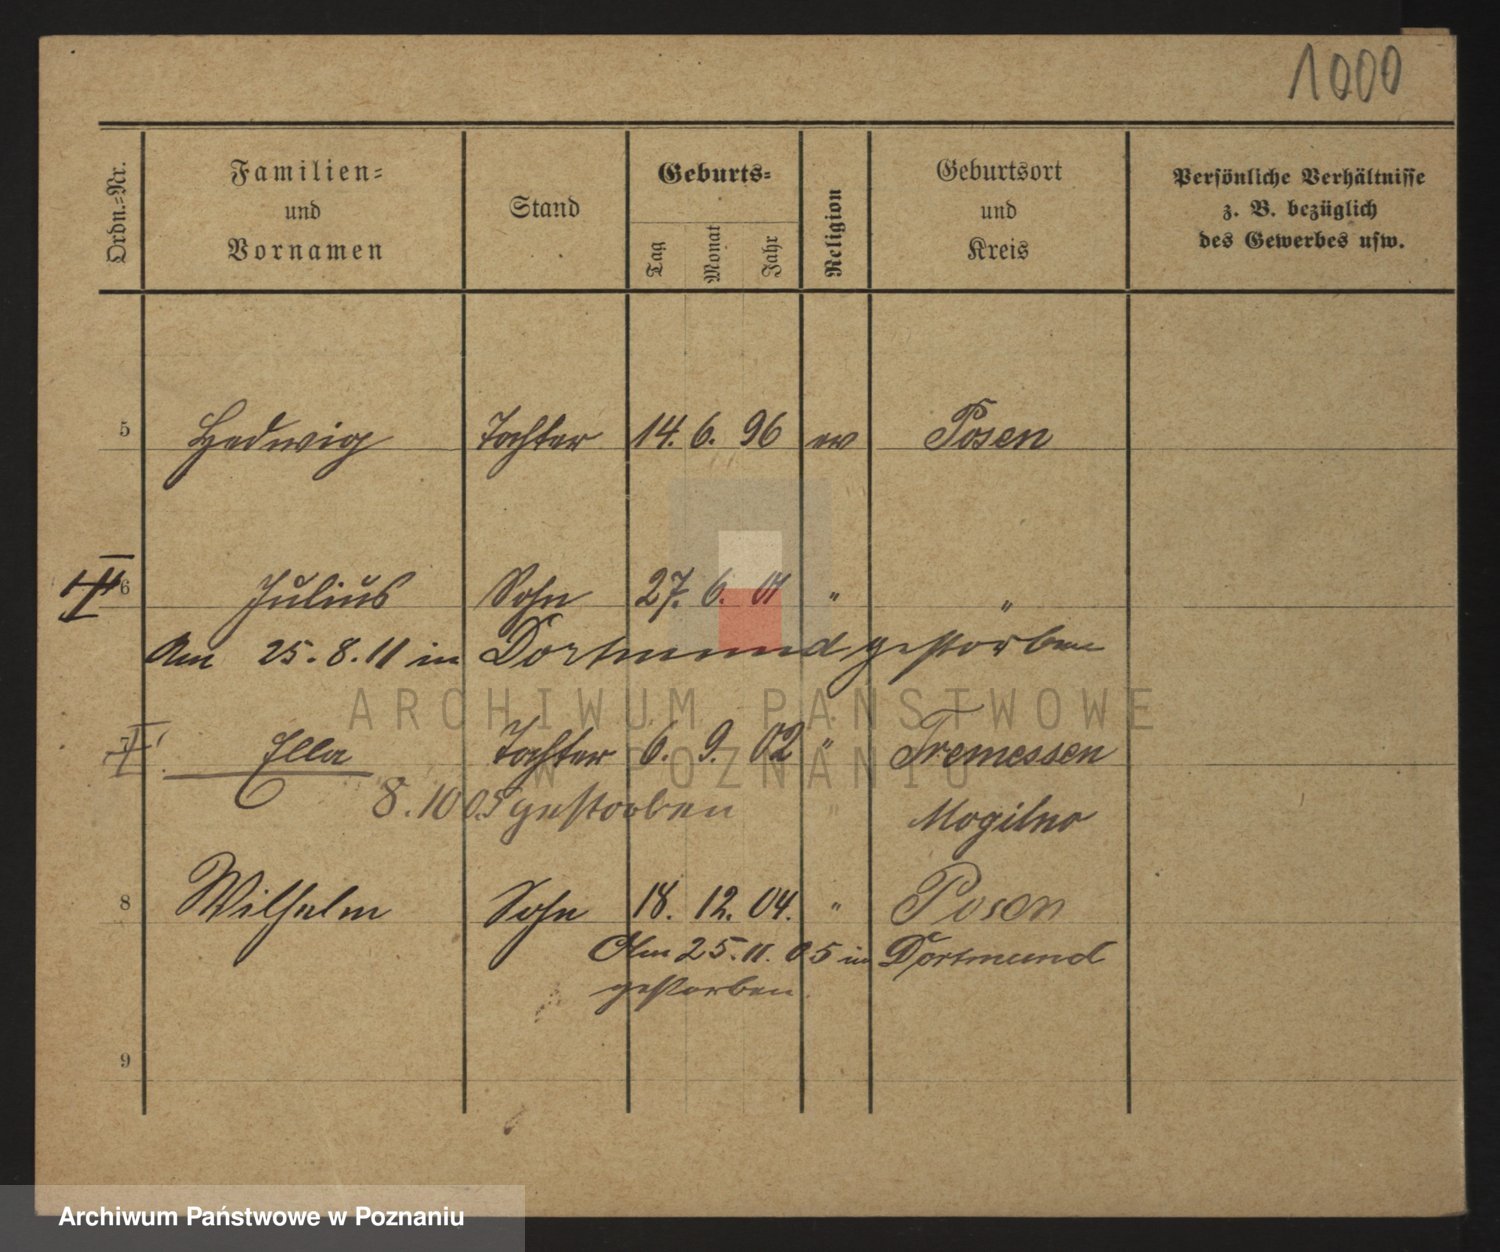 1000
Ordn.-Nr.
Familien-
und
Vornamen
Stand
Geburts-
Tag Monat Jahr
Religion
Geburtsort
und
Kreis
Persönliche Verhältnisse
z. B. bezüglich
des Gewerbes usw.
5 Hedwig Tochter 14. 6. 96 ev Posen
6 Julius Sohn 27. 6. 01 " "
Am 25.8.11 in Dortmund gestorben
Ella Tochter 6. 9. 02 " Tremessen
8.10 05 gestorben " Mogilno
8 Wilhelm Sohn 18. 12. 04. " Posen
Am 25.11.05 in Dortmund
gestorben
9
ARCHIWUM PAŃSTWOWE
W POZNANIU
Archiwum Państwowe w Poznaniu